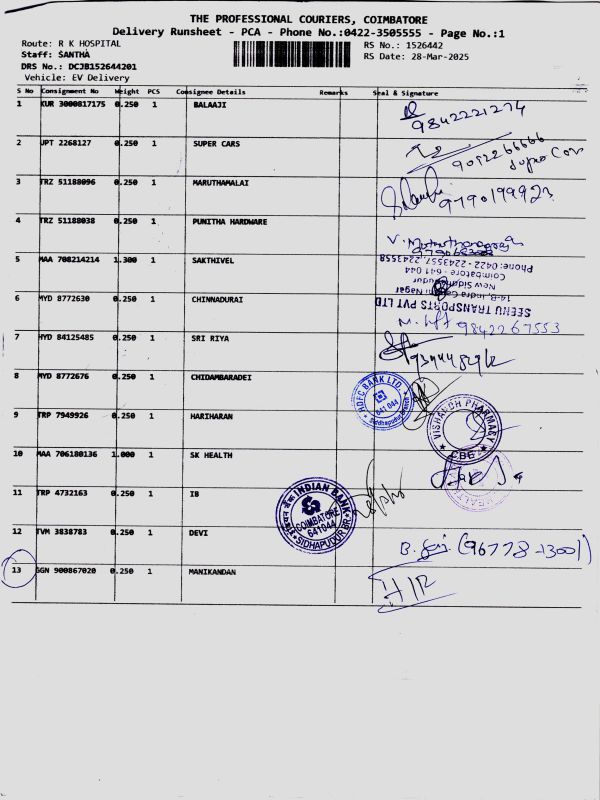 THE PROFESSIONAL COURIERS, COIMBATORE
Delivery Runsheet - PCA - Phone No.:0422-3505555 - Page No.:1
Route: R K HOSPITAL
RS No.: 1526442
Staff: SANTHA
RS Date: 28-Mar-2025
DRS No.: DCJB152644201
Vehicle: EV Delivery
S No Consignment No Weight PCS Consignee Details Remarks Seal & Signature
1 KUR 3000817175 0.250 1 BALAAJI
9842221274
2 JPT 2268127 0.250 1 SUPER CARS
9092266666
Super Cars
3 TRZ 51188096 0.250 1 MARUTHAMALAI
9790199923
4 TRZ 51188038 0.250 1 PUNITHA HARDWARE
5 MAA 708214214 1.300 1 SAKTHIVEL
SEENU TRANSPORTS PVT LTD
14-B, Indra Gandhi Nagar
New Siddhapudur
Coimbatore - 641 044
Phone: 0422 - 2243557, 2243558
6 MYD 8772630 0.250 1 CHINNADURAI
9842267553
7 HYD 84125485 0.250 1 SRI RIYA
8 MYD 8772676 0.250 1 CHIDAMBARADEI
HDFC BANK LTD.
641 044
Siddhapudur
9 TRP 7949926 0.250 1 HARIHARAN
VISHALDH PHARMACY
CBE
10 MAA 706180136 1.000 1 SK HEALTH
11 TRP 4732163 0.250 1 IB
इंडियन बैंक INDIAN BANK
COIMBATORE
641044
SIDHAPUDUR BR.
12 TVM 3838783 0.250 1 DEVI
(96778-13001)
13 SGN 900867020 0.250 1 MANIKANDAN